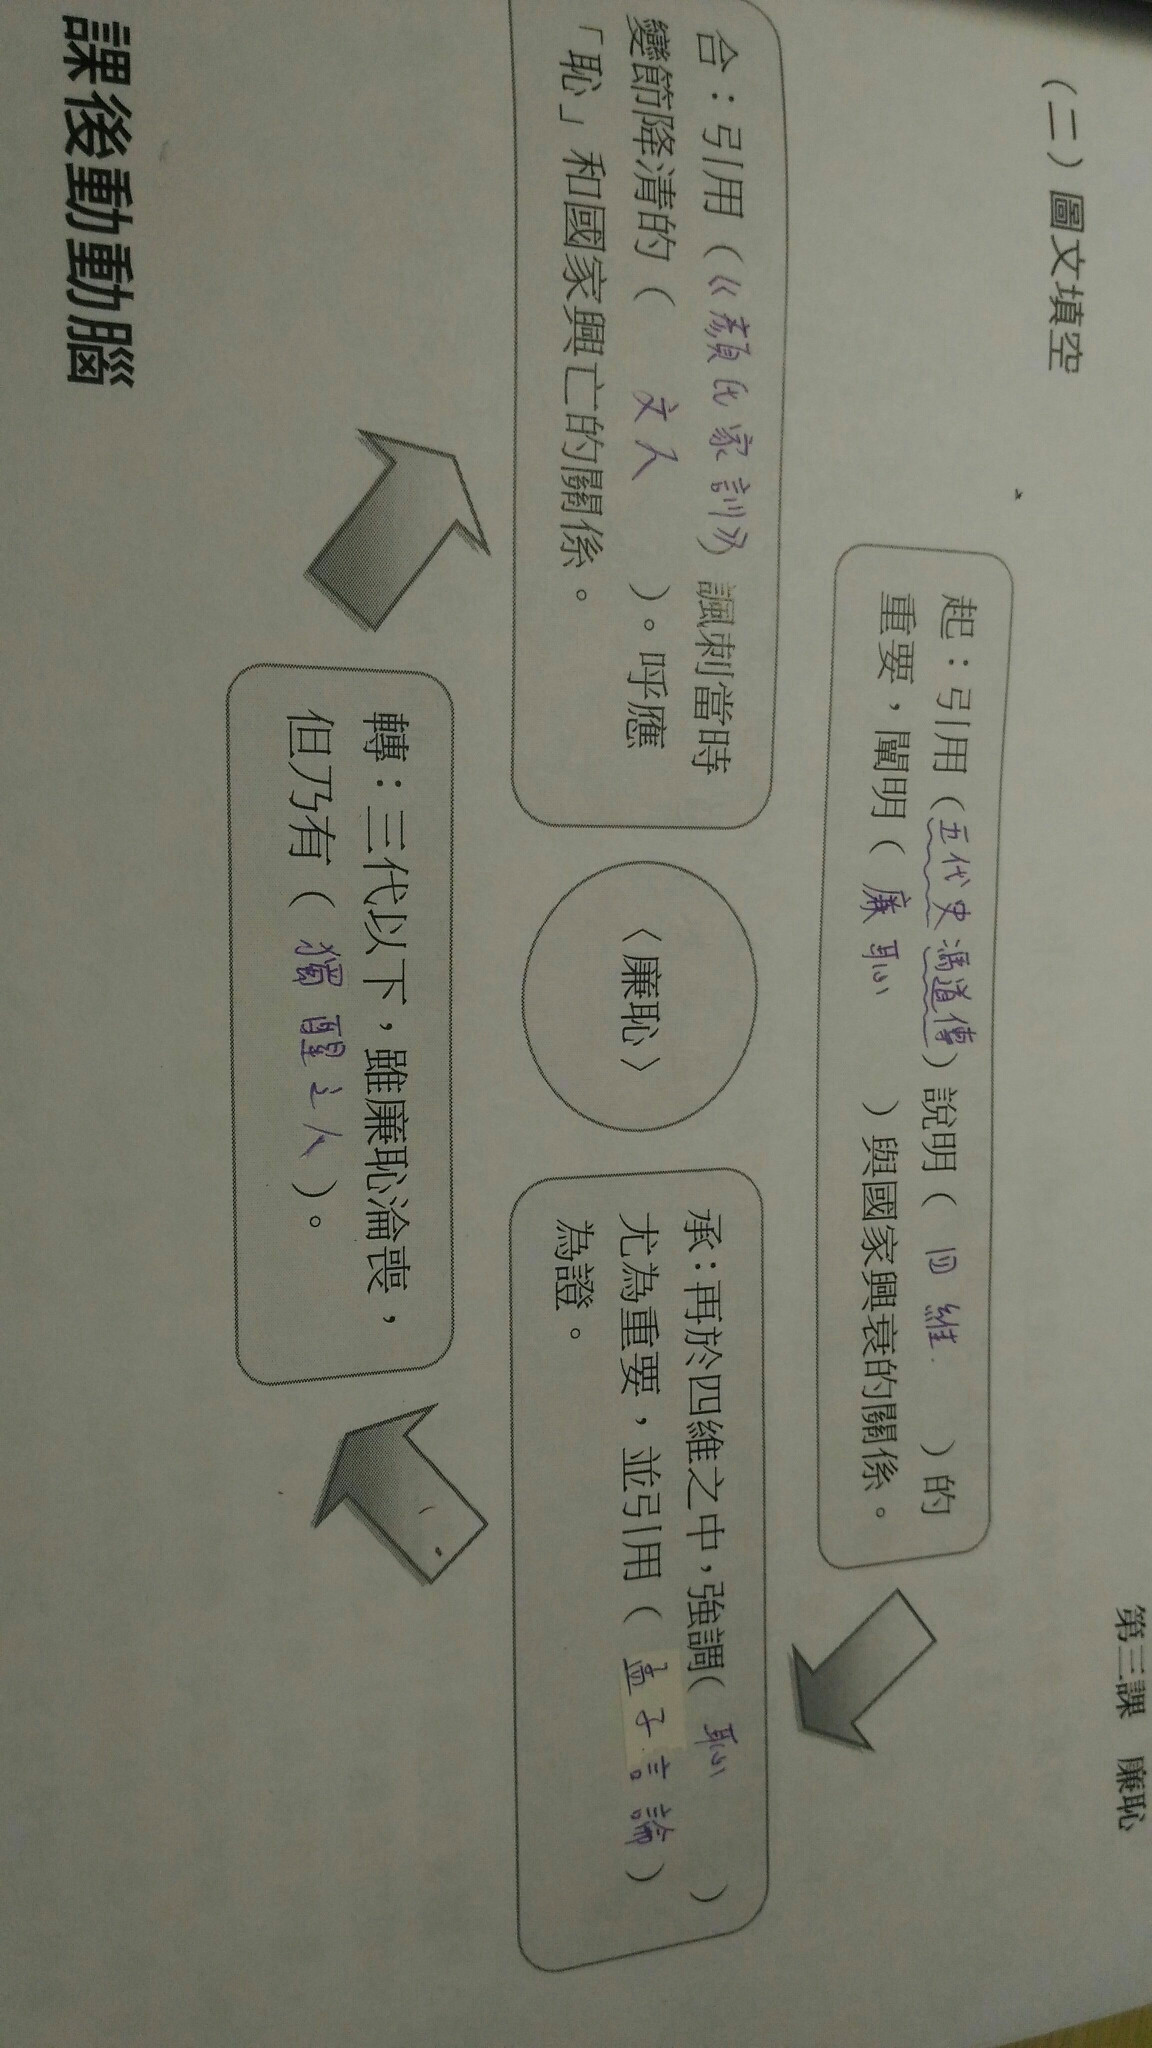 第三課 廉恥
（二）圖文填空
起：引用（五代史馮道傳）說明（四維）的
重要，闡明（廉恥）與國家興衰的關係。
承：再於四維之中，強調（恥）
尤為重要，並引用（孟子言論）
為證。
轉：三代以下，雖廉恥淪喪，
但乃有（獨醒之人）。
合：引用（《顏氏家訓》）諷刺當時
變節降清的（文人）。呼應
「恥」和國家興亡的關係。
〈廉恥〉
課後動動腦